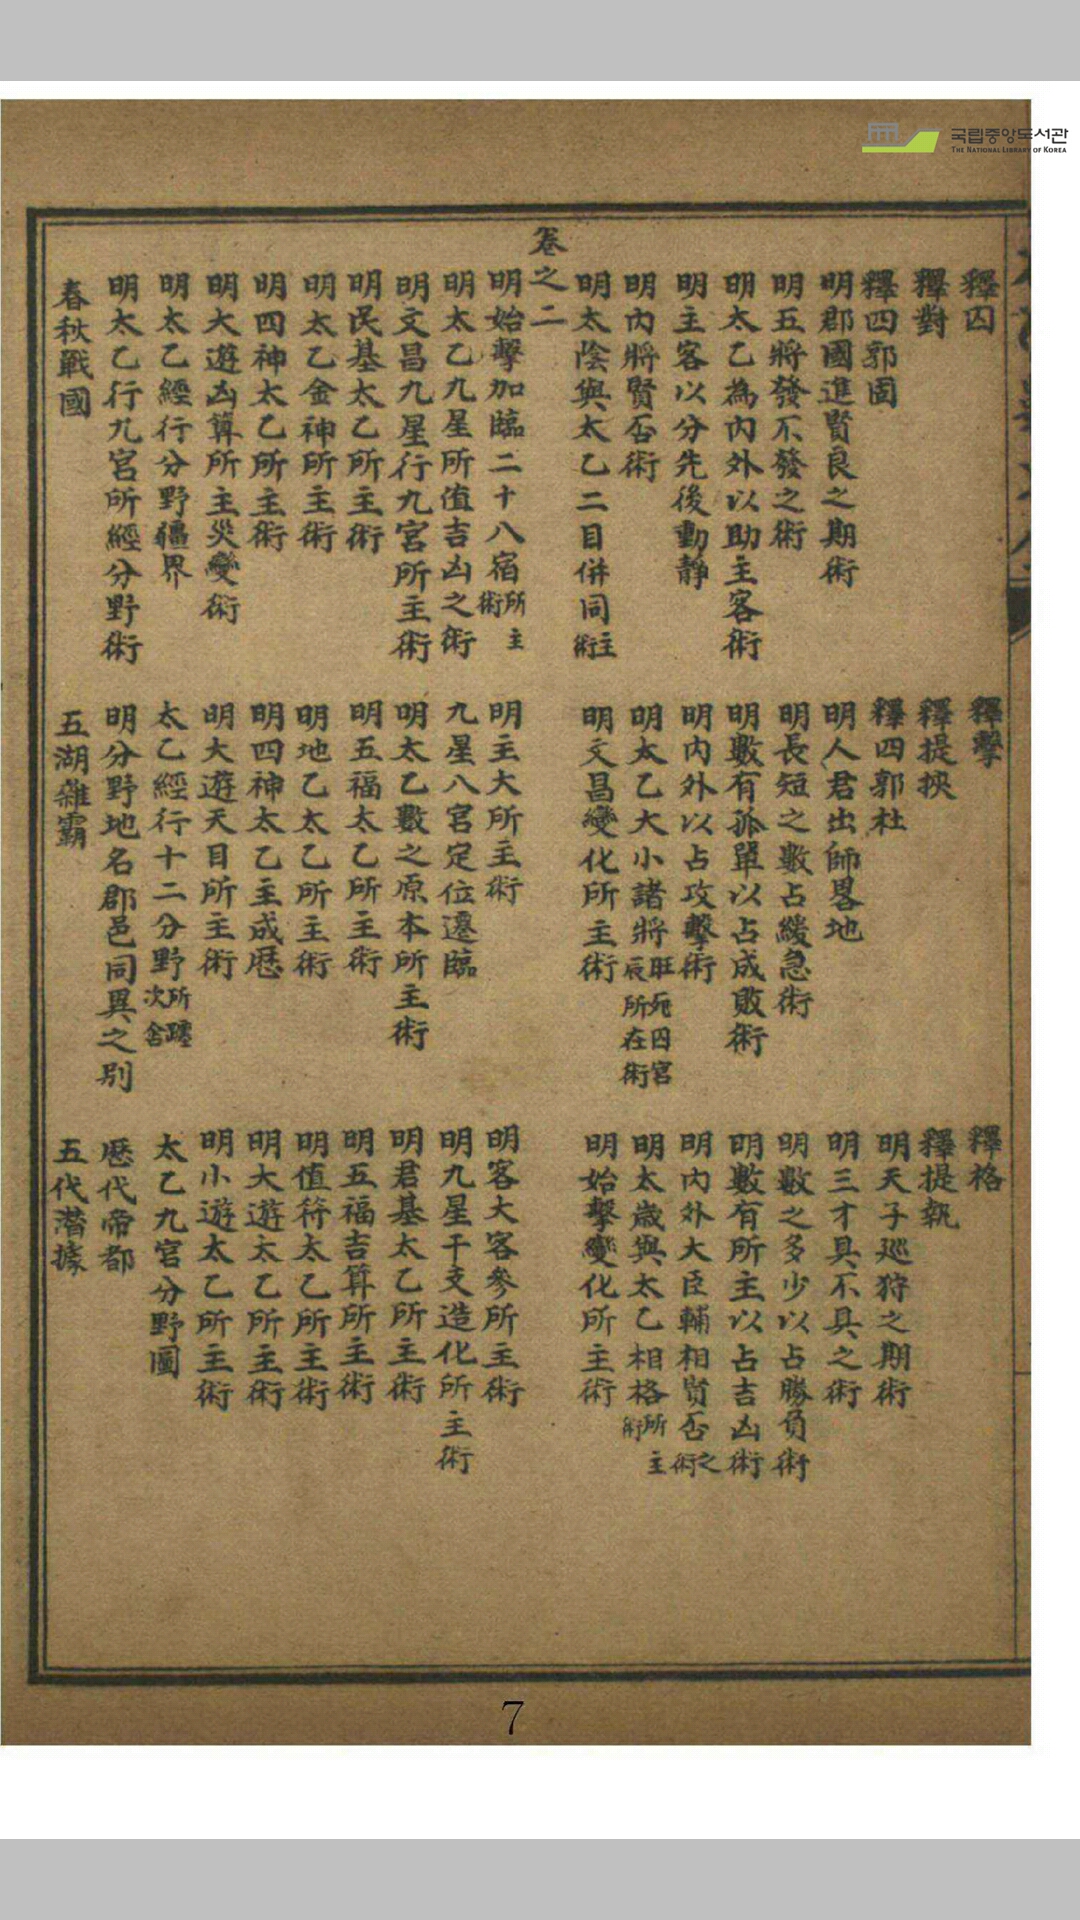 국립중앙도서관
THE NATIONAL LIBRARY OF KOREA
釋囚 釋擊 釋格
釋對 釋提挾 釋提執
釋四郭固 釋四郭杜 明天子廵狩之期術
明郡國進賢良之期術 明人君出師畧地 明三才具不具之術
明五將發不發之術 明長短之數占緩急術 明數之多少以占勝負術
明太乙為內外以助主客術 明數有孤單以占成敗術 明數有所主以占吉凶術
明主客以分先後動靜 明內外以占攻擊術 明內外大臣輔相賢否之術
明內將賢否術 明太乙大小諸將旺死囚宮辰所在術 明太歲與太乙相格所主術
明太陰與太乙二目併同主術 明文昌變化所主術 明始擊變化所主術
卷之二
明始擊加臨二十八宿所主術 明主大所主術 明客大客參所主術
明太乙九星所值吉凶之術 九星八宮定位遷臨 明九星干支造化所主術
明文昌九星行九宮所主術 明太乙數之原本所主術 明君基太乙所主術
明民基太乙所主術 明五福太乙所主術 明五福吉算所主術
明太乙金神所主術 明地乙太乙所主術 明值符太乙所主術
明四神太乙所主術 明四神太乙主成歷 明大遊太乙所主術
明大遊凶算所主災變術 明大遊天目所主術 明小遊太乙所主術
明太乙經行分野疆界 太乙經行十二分野所躔次舍 太乙九宮分野圖
明太乙行九宮所經分野術 明分野地名郡邑同異之別 歷代帝都
春秋戰國 五湖雜霸 五代潛據
7